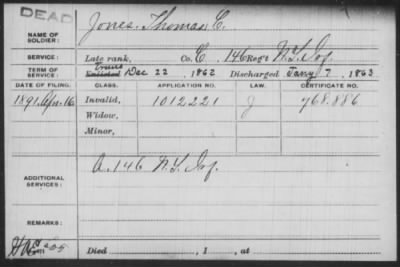 DEAD
NAME OF SOLDIER: Jones, Thomas C.
SERVICE: Late rank, Co. C, 146 Reg't N.Y. Inf.
TERM OF SERVICE: Trans Enlisted Dec 22, 1862 Discharged Jany 7, 1863
DATE OF FILING. CLASS. APPLICATION NO. LAW. CERTIFICATE NO.
1891 Apr. 16 Invalid, 1012221 J 768.886
Widow,
Minor,
ADDITIONAL SERVICES: A. 146 N.Y. Inf.
REMARKS:
Died , 1 , at